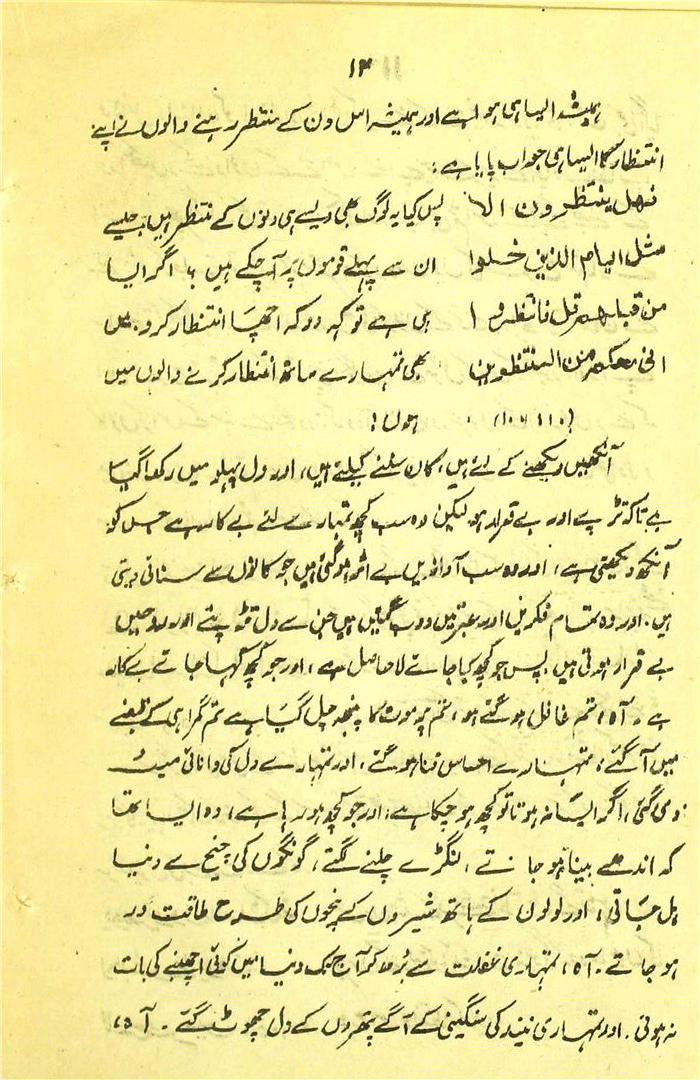 ۱۳
ہمیشہ ایسا ہی ہوا ہے اور ہمیشہ اس دن کے منتظر رہنے والوں نے اپنے
انتظار کا ایسا ہی جواب پایا ہے:
فھل ینتظرون الا پس کیا یہ لوگ بھی ویسے ہی دنوں کے منتظر ہیں جیسے
مثل ایام الذین خلوا ان سے پہلے قوموں پر آ چکے ہیں ؟ اگر ایسا
من قبلھم قل فانتظروا ہی ہے تو کہہ دو کہ اچھا انتظار کرو۔ میں
انی معکم من المنتظرین بھی تمہارے ساتھ انتظار کرنے والوں میں
(۱۰: ۱۱۰) ہوں!
آنکھیں دیکھنے کے لئے ہیں، کان سننے کیلئے ہیں، اور دل پہلو میں رکھا گیا
ہے تاکہ تڑپے اور بے قرار ہو لیکن وہ سب کچھ تمہارے لئے بے کار ہے جس کو
آنکھ دیکھتی ہے، اور وہ سب آوازیں بے اثر ہو گئی ہیں جو کانوں سے سنائی دیتی
ہیں۔ اور وہ تمام فکریں اور عبرتیں ڈوب گئیں ہیں جن سے دل تڑپتے اور روحیں
بے قرار ہوتی ہیں پس جو کچھ کیا جائے لا حاصل ہے، اور جو کچھ کہا جائے بے کار
ہے۔ آہ، تم غافل ہو گئے ہو، تم پر موت کا پنجہ چل گیا ہے تم گمراہی کے قبضے
میں آگئے، تمہارے احساس فنا ہو گئے، اور تمہارے دل کی دانائی میٹ
دی گئی، اگر ایسا نہ ہوتا تو کچھ ہو چکا ہے، اور جو کچھ ہو رہا ہے، وہ ایسا تھا
کہ اندھے بینا ہو جاتے، لنگڑے چلنے لگتے، گونگوں کی چیخ سے دنیا
ہل جاتی، اور لولوں کے ہاتھ شیروں کے پنجوں کی طرح طاقت ور
ہو جاتے۔ آہ، تمہاری غفلت سے بڑھ کر آج تک دنیا میں کوئی اچھنبے کی بات
نہ ہوئی۔ اور تمہاری نیند کی سنگینی کے آگے پتھروں کے دل چھوٹ گئے۔ آہ،